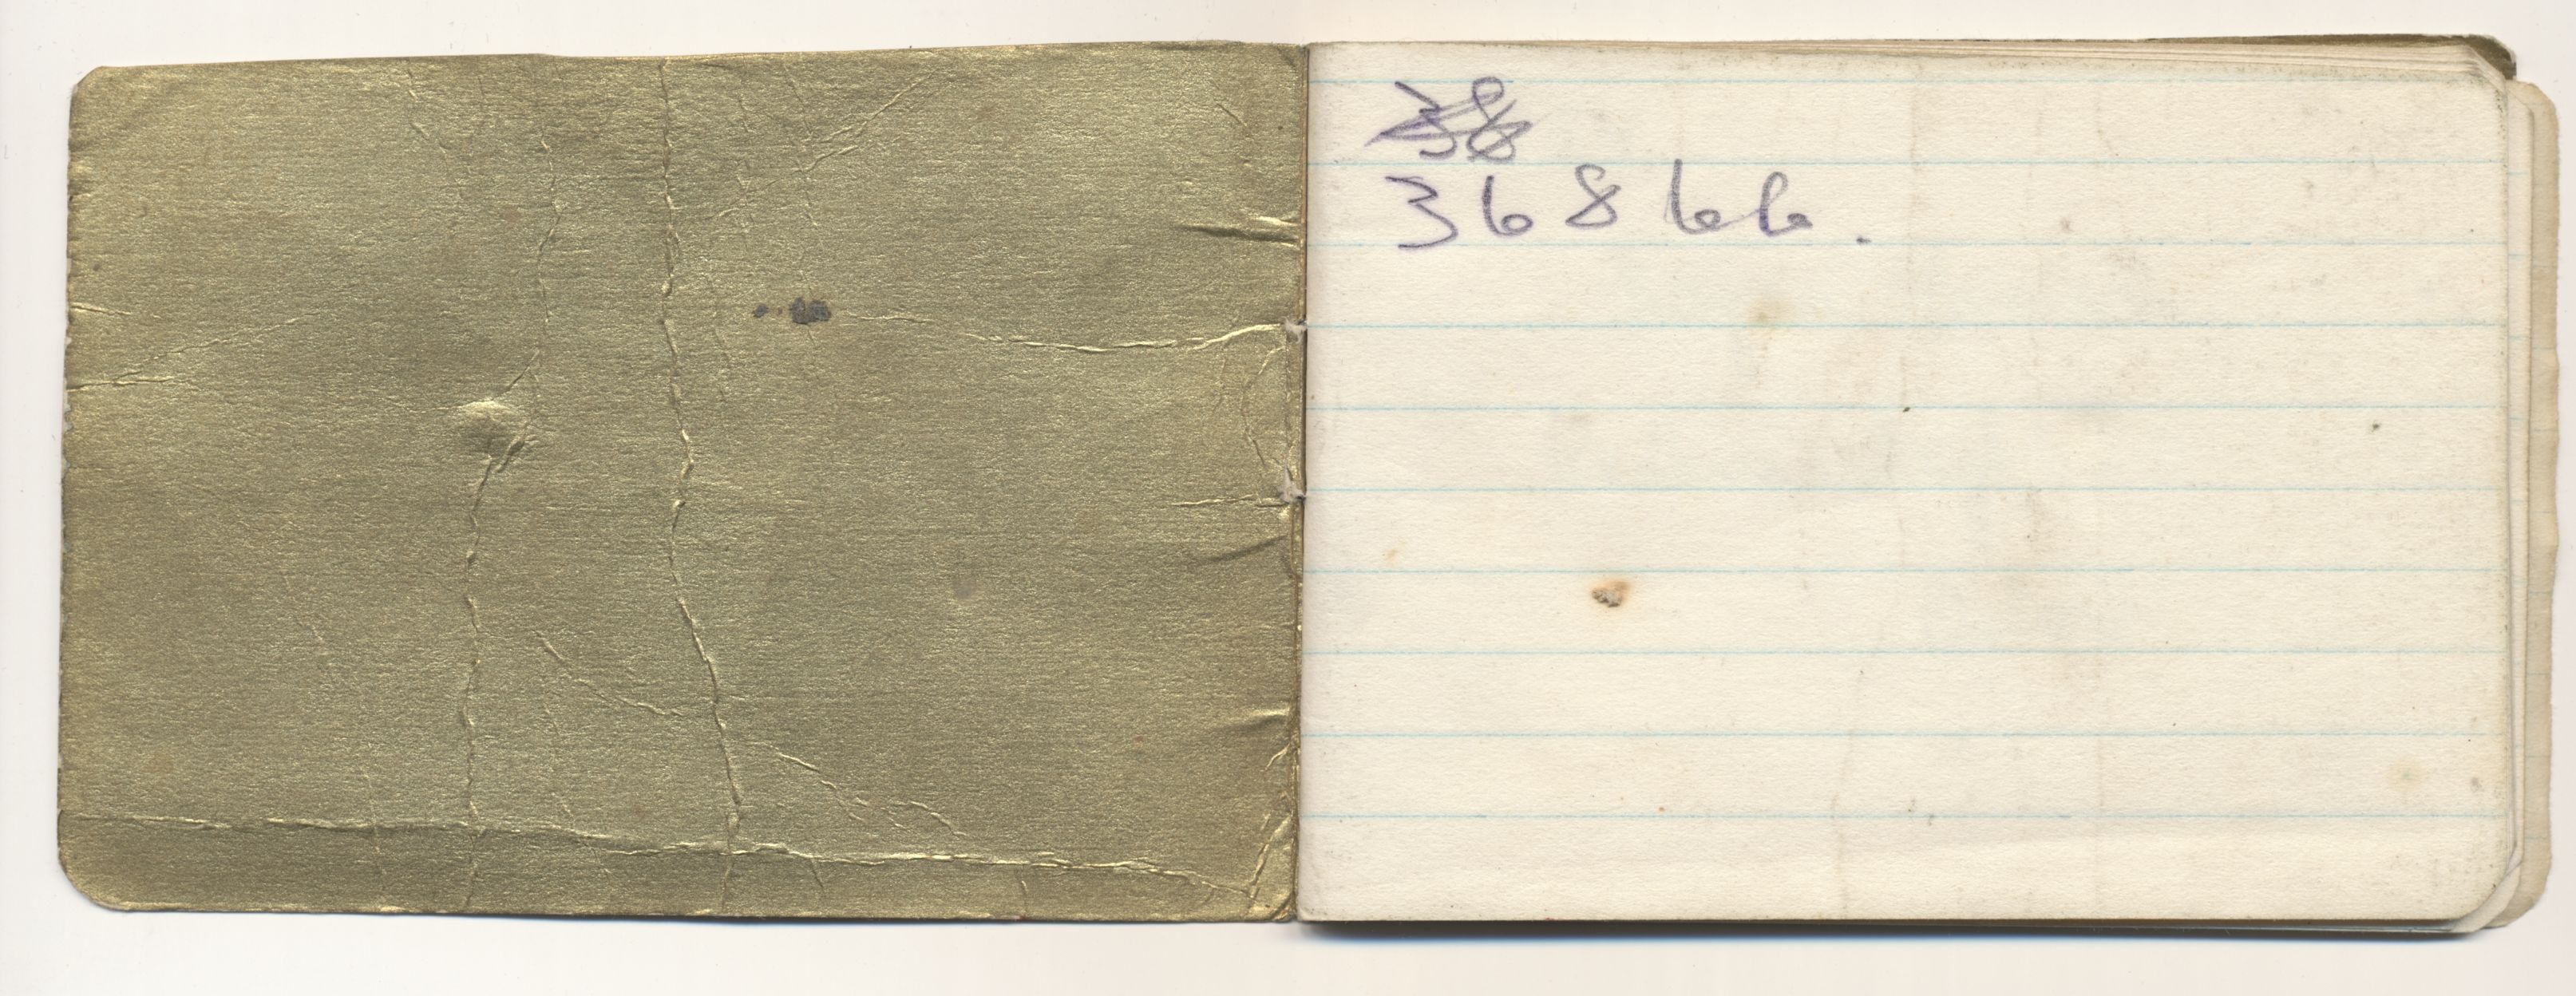 38
36866.